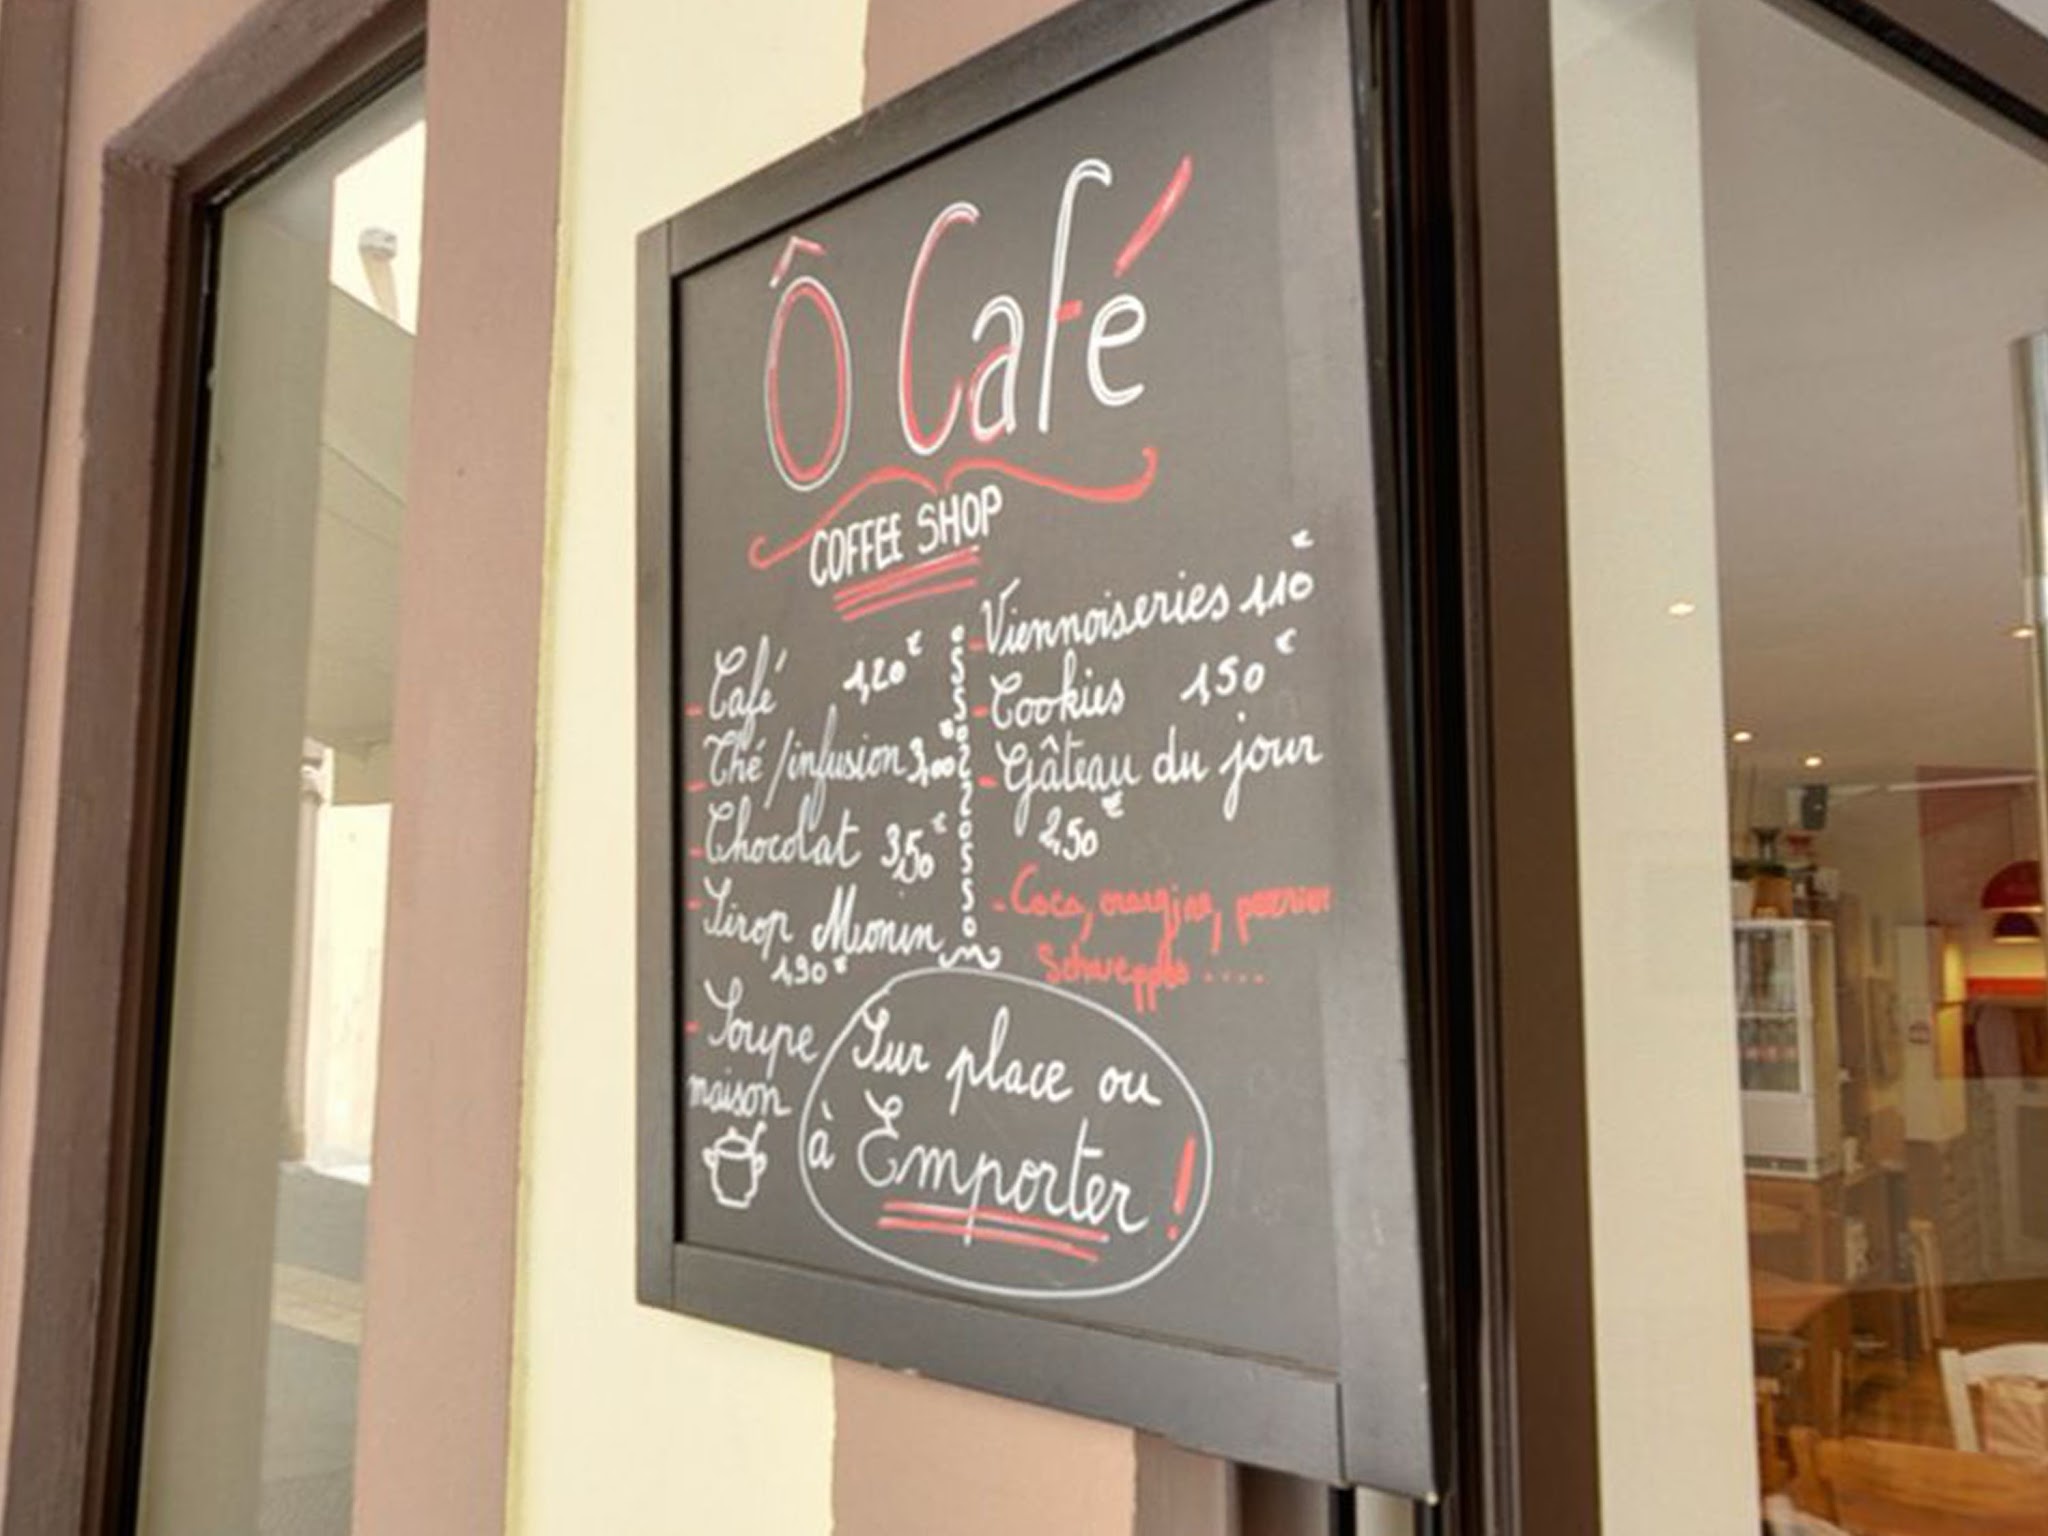 Ô Café
COFFEE SHOP
- Café 1,20€
- Thé / infusion 3,00€
- Chocolat 3,50€
- Sirop Monin
1,90€
- Soupe
maison
- Viennoiseries 1,10€
- Cookies 1,50€
- Gâteau du jour
2,50€
- Coca, orangina, perrier
Schweppes ....
Sur place ou
à Emporter !